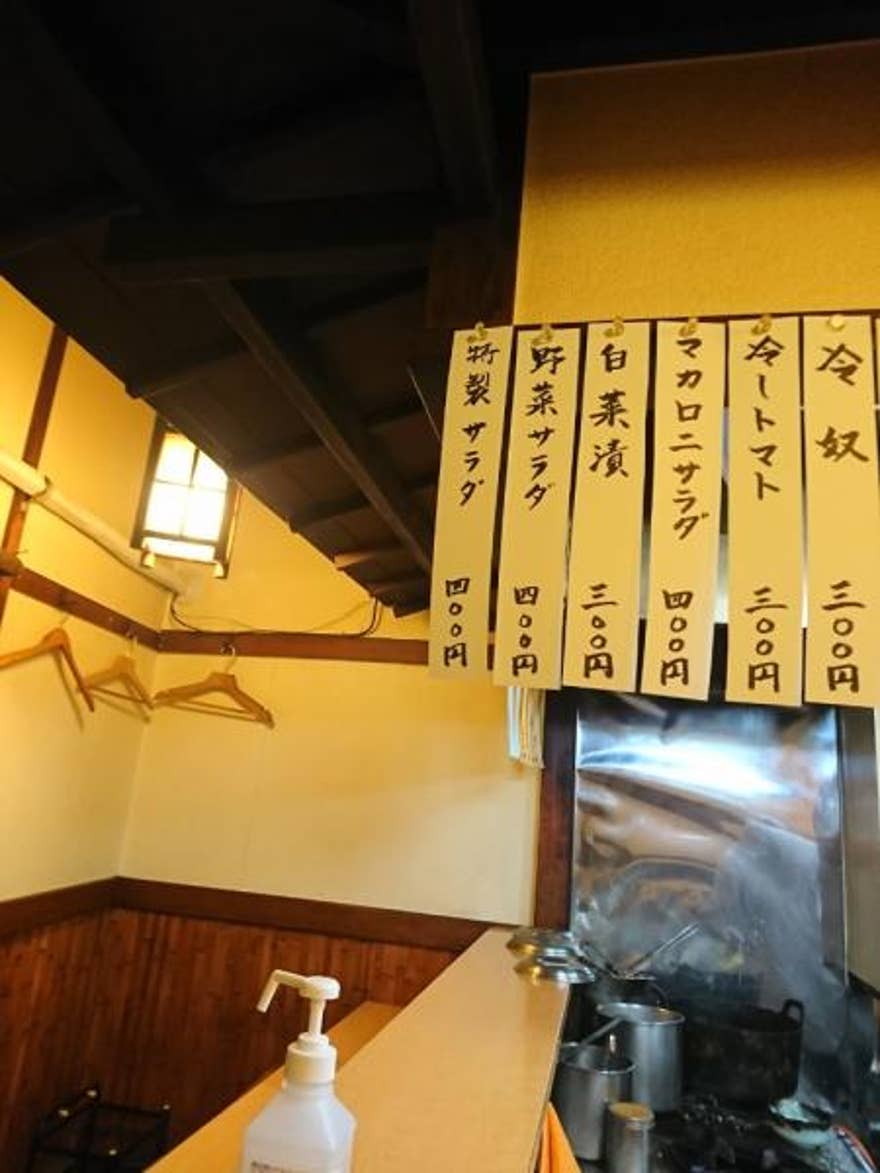 冷奴 三〇〇円
冷しトマト 三〇〇円
マカロニサラダ 四〇〇円
白菜漬 三〇〇円
野菜サラダ 四〇〇円
特製サラダ 四〇〇円